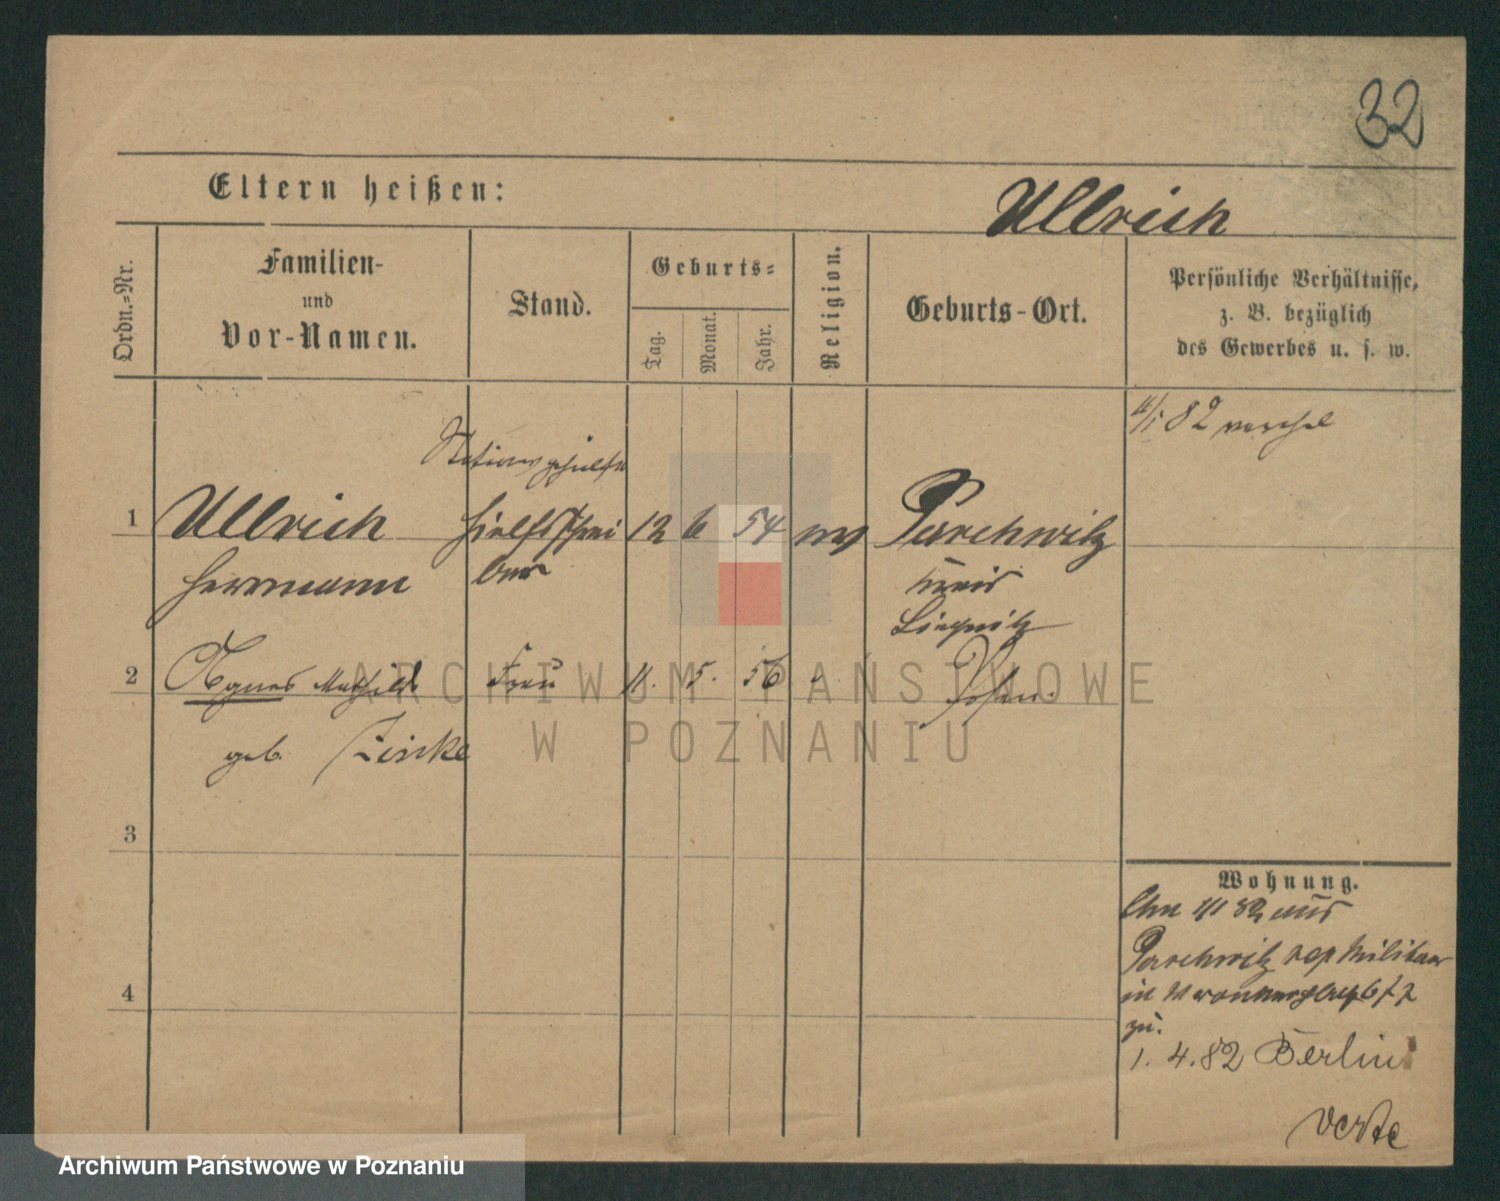 32
Eltern heißen:
Ullrich
Ordn.=Nr.
Familien-
und
Vor-Namen.
Stand.
Geburts=
Tag.
Monat.
Jahr.
Religion.
Geburts-Ort.
Persönliche Verhältnisse,
z. B. bezüglich
des Gewerbes u. s. w.
82
Stationsgehülfe
1 Ullrich Hielfsschrei 12 6 54 Parchwitz
Herrmann ber Kreis
Liegnitz
2 Agnes Mathild Frau 11. 5. 56 Posen.
geb. Zinke
3
Wohnung.
1/1 82 aus
Parchwitz Militär
in
zu.
4
1. 4. 82 Berlin
verte
ARCHIWUM PAŃSTWOWE
W POZNANIU
Archiwum Państwowe w Poznaniu